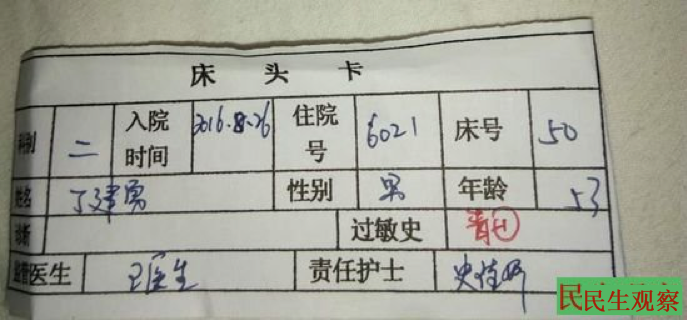 床 头 卡
科别 二 入院时间 2016.8.26 住院号 6021 床号 50
姓名 丁建勇 性别 男 年龄 53
诊断 过敏史 青(+)
监管医生 王医生 责任护士 史
民民生观察